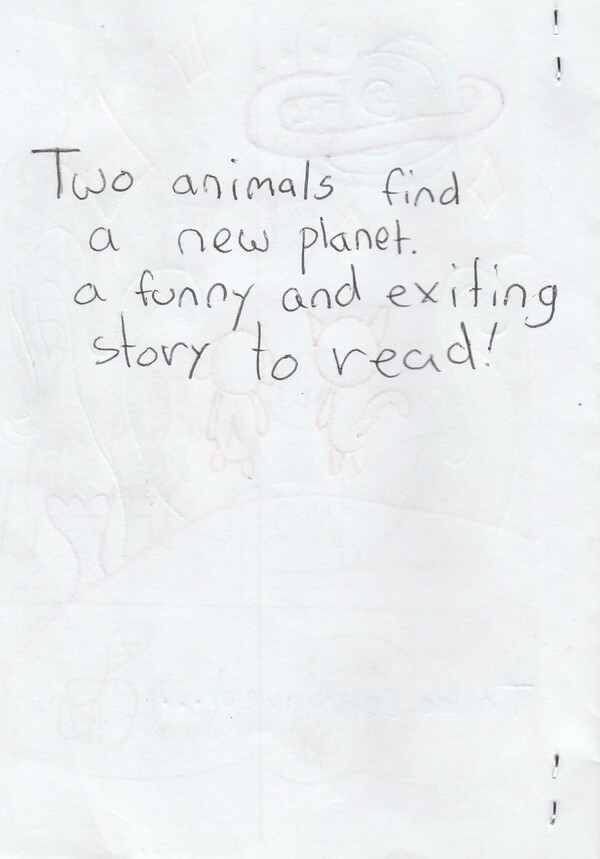 Two animals find
a new planet.
a funny and exiting
story to read!